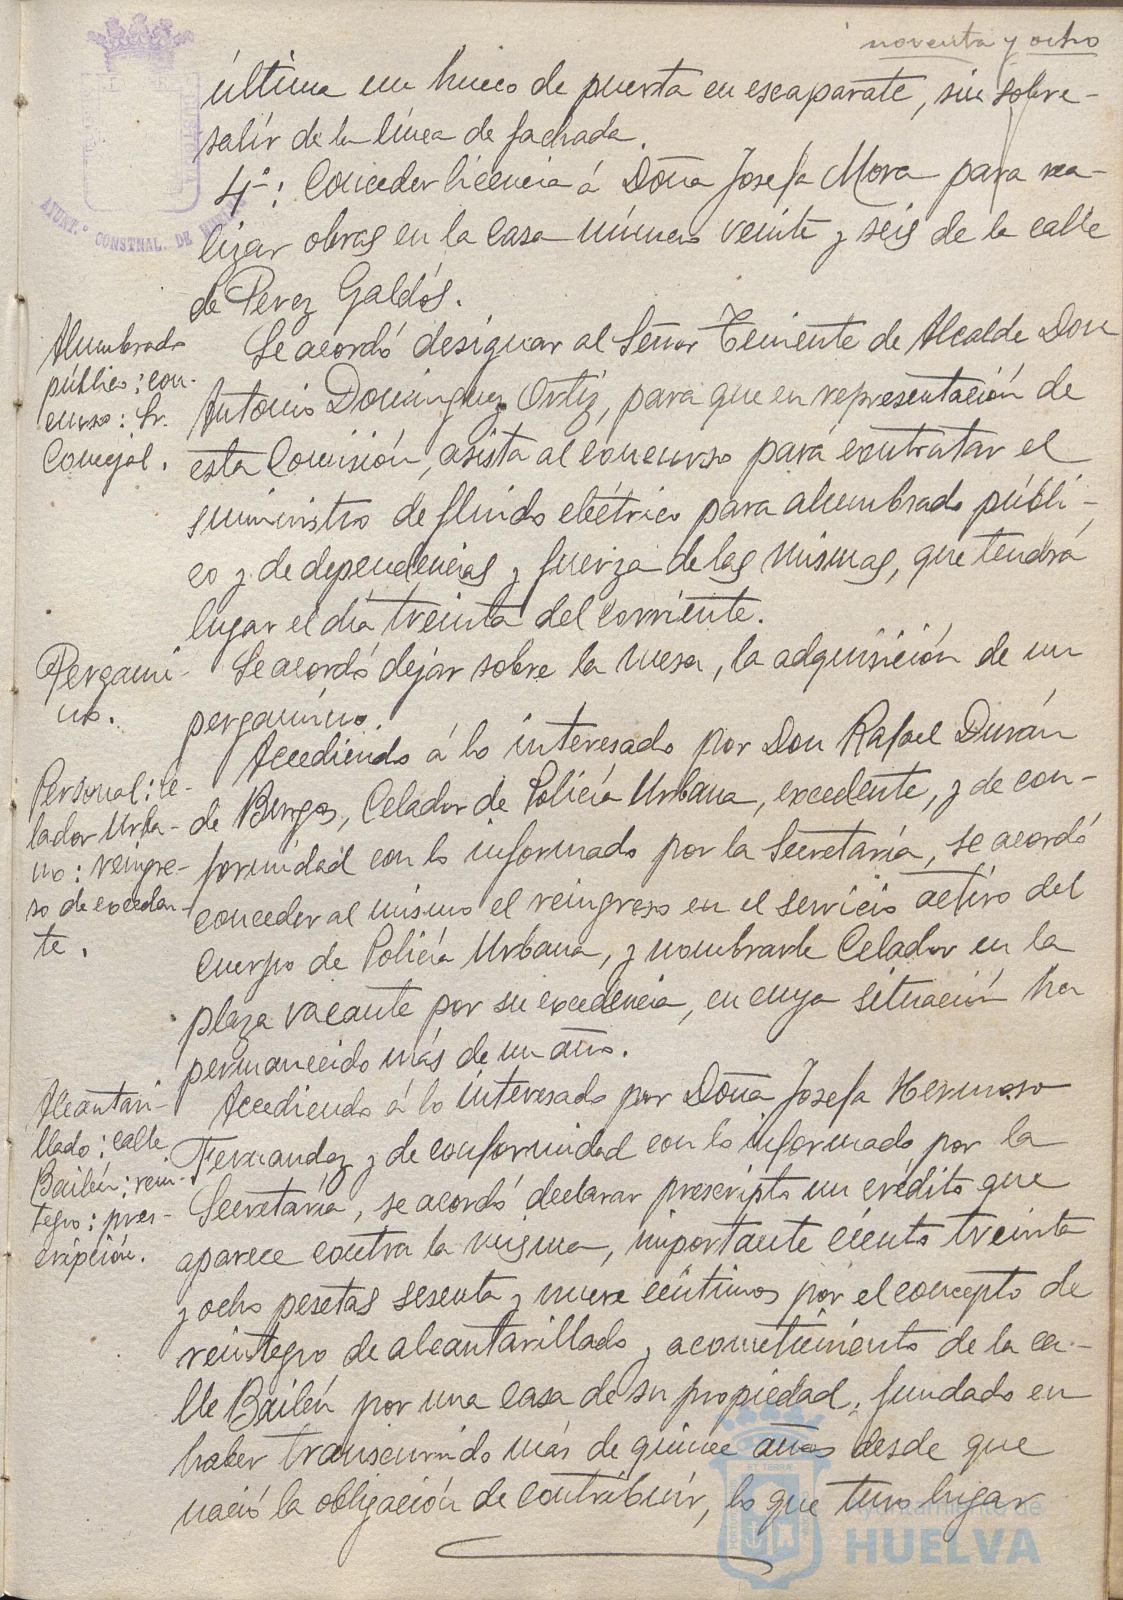 noventa y ocho
última un hueco de puerta en escaparate, sin sobre-
salir de la línea de fachada.
4º: Conceder licencia á Doña Josefa Mora para rea-
lizar obras en la casa número veinte y seis de la calle
de Perez Galdós.
Alumbrado
público: con-
curso: Sr.
Concejal.
Se acordó designar al Señor Teniente de Alcalde Don
Antonio Dominguez Ortiz, para que en representación de
esta Comisión, asista al concurso para contratar el
suministro de fluido eléctrico para alumbrado públi-
co y de dependencias y fuerza de las mismas, que tendrá
lugar el día treinta del corriente.
Pergami-
no.
Se acordó dejar sobre la mesa, la adquisición de un
pergamino.
Personal: ce-
lador Urba-
no: reingre-
so de exceden-
te.
Accediendo á lo interesado por Don Rafael Durán
de Burgos, Celador de Policía Urbana, excedente, y de con-
formidad con lo informado por la Secretaría, se acordó
conceder al mismo el reingreso en el servicio activo del
Cuerpo de Policía Urbana, y nombrarle Celador en la
plaza vacante por su excedencia, en cuya situación ha
permanecido más de un año.
Alcantari-
llado: calle
Bailén: rein-
tegro: pres-
cripción.
Accediendo á lo interesado por Doña Josefa Hermoso
Fernandez y de conformidad con lo informado por la
Secretaría, se acordó declarar prescripto un crédito que
aparece contra la misma, importante ciento treinta
y ocho pesetas sesenta y nueve céntimos por el concepto de
reintegro de alcantarillado y acometimiento de la ca-
lle Bailén por una casa de su propiedad, fundado en
haber transcurrido más de quince años desde que
nació la obligación de contribuir, lo que tuvo lugar
AYUNT.º CONSTNAL. DE HUELVA
Ayuntamiento de
HUELVA